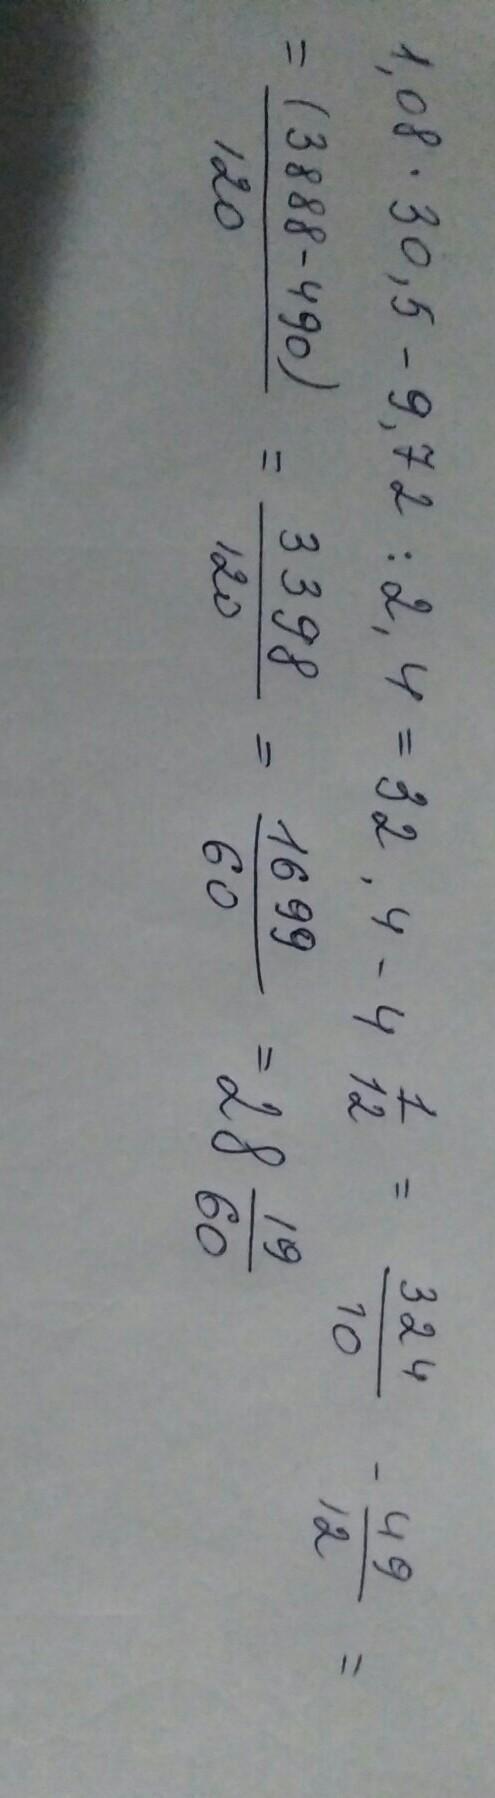 1,08 · 30,5 - 9,72 : 2,4 = 32,4 - 4 1/12 = 324/10 - 49/12 =
= (3888-490)/120 = 3398/120 = 1699/60 = 28 19/60